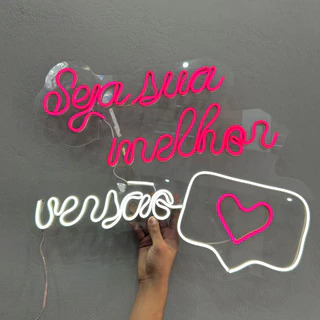 Seja sua
melhor
versão